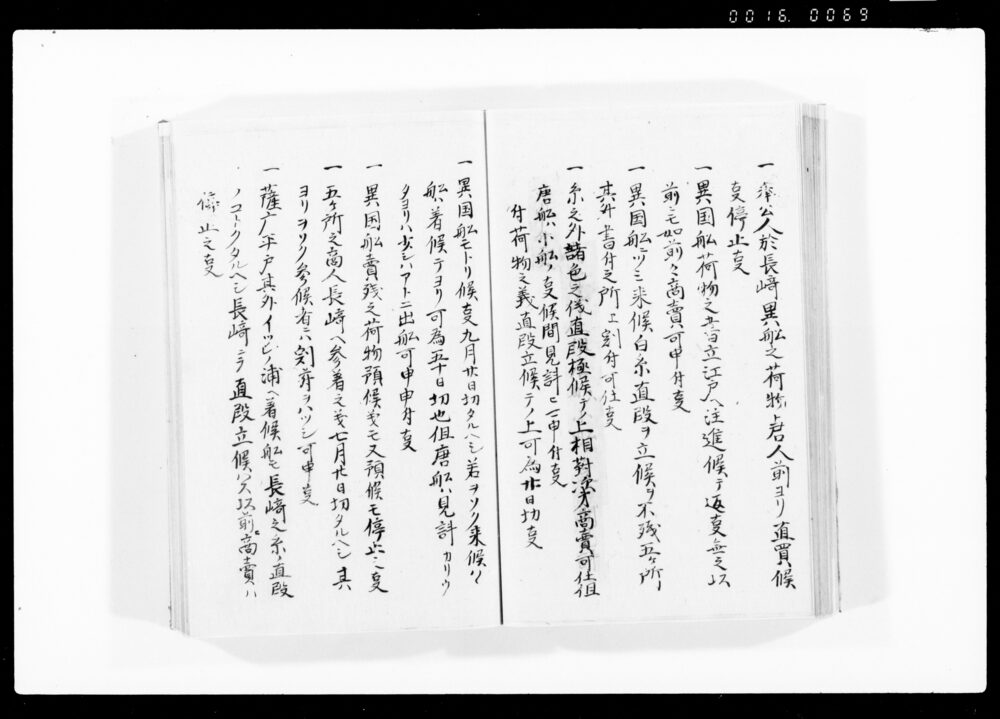 0016. 0069
一 奉公人於長崎異舩之荷物唐人前ヨリ直買候
叓停止叓
一 異国舩荷物之書立江戸ヘ注進候テ返叓無之以
前ニモ如前々商賣可申付叓
一 異国舩ニツミ来候白糸直段ヲ立候テ不残五ケ所ヘ
其外書付之所ヱ割付可仕叓
一 糸之外諸色之儀直段極候テノ上相對次第商賣可仕但
唐舩ハ小舩ノ叓候間見計ニ可申付叓
付荷物之義直段立候テノ上可為廿日切叓
一 異国舩モトリ候叓九月廿日切タルヘシ若ヲソク来候ハヽ
舩着候テヨリ可為五十日切也但唐舩ハ見計カリウ
タヨリハ少シハアトニ出舩可申申付叓
一 異国舩賣残之荷物預候義モ又預候モ停止之叓
一 五ケ所之商人長崎ヘ参着之義七月廿日切タルヘシ其
ヨリヲソク参候者ニハ割符ヲハツシ可申叓
一 薩广平戸其外イツレノ浦ヘ着候舩モ長崎之糸ノ直段
ノコトクタルヘシ長崎ニテ直段立候ハヌ以前商賣ハ
停止之叓